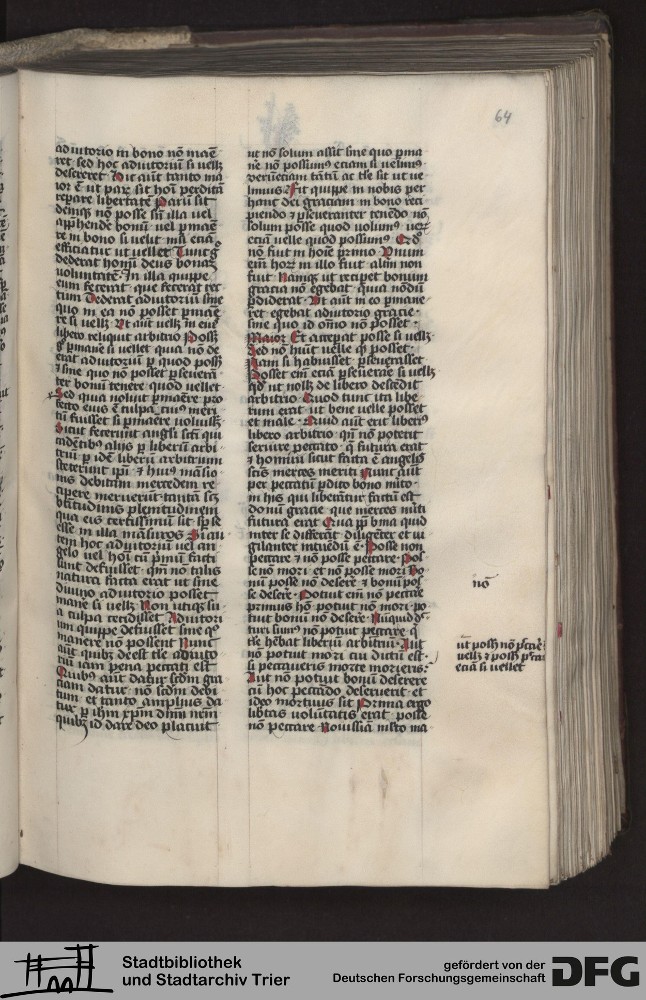 64
adiutorio in bono nō manē
ret sed hoc adiutoriū si vellz
desereret Nūc aut̄ tanto ma
ior ē ut parū sit hoī perditā
repare libertatē Parū sit
deniqz non posse sn̄ illa vel
app̄hendē bonū vel p̄manē
re in bono si velit nisi eciā
efficiatur ut vellet Tunc gͦ
dederat homī deus bonaz
voluntatē In illa quippe
eum fecerat que fecerat rec
tum Dederat adiutoriū sine
quo in ea nō posset p̄manē
re si vellz Ut aut̄ vellz in eiꝰ
libero reliquit arbitrio Possz
gͦ p̄manē si vellet quia nō de
erat adiutoriū p quod possz
⁊ sine quo nō posset p̄severā
ter bonū tenere quod vellet
Sed quia noluit p̄manēre pro
fecto eius ē culpa cuiꝰ meri
tū fuisset si p̄manēre voluissz
Sicut fecerunt angli sc̄i qui
cadētibꝰ alijs p liberū arbi
triū p idē liberū arbitrium
steterunt ip̄i ⁊ huiꝰ māsio
nis debitam mercedem re
cipere meruerūt tantā scz
btītudinis plenitudinem
qua eis certissimū sit sp̄ se
esse in illa māsuros Si au
tem hoc adiutoriū vel an
gelo vel hoī cū p̄mū facti
sunt defuisset qm̄ nō talis
natura facta erat ut sine
diuino adiutorio posset
manē si vellz Non utiqz su
a culpa cecidisset Adiutori
um quippe defuisset sine qͦ
manere nō possent Nunc
aut̄ quibꝫ deest tale adiuto
riū iam pena peccati est
Quibꝰ aut̄ datur scd̄m gra
ciam datur nō scd̄m debi
tum et tanto ampliꝰ da
tur p ih̄m xp̄m dn̄m nr̄m
quibꝫ id dare deo placuit
ut nō solum assit sine quo p̄ma
nē nō possimꝰ eciam si velimꝰ
verūetiam tātū ac tale sit ut ve
limus Fit quippe in nobis per
hanc dei graciam in bono reci
piendo ⁊ p̄severanter tenēdo nō
solum posse quod volumꝰ verū
eciā velle quod possumꝰ Qd̄
nō fuit in hoīe primo Unum
em̄ horz in illo fuit aliud non
fuit Namqz ut recip̄et bonum
gracia nō egebat quia nōdū
p̄diderat Ut aut̄ in eo p̄mane
ret egebat adiutorio gracie
sine quo id om̄io nō posset
Et accepat posse si vellz
Sed nō huit velle qͦ posset
Nam si habuisset p̄severasset
Posset em̄ eciā p̄seuerare si vellz
qd̄ ut nollz de libero descēdit
arbitrio Quod tunc ita libe
rum erat ut bene velle posset
et male Quid aut̄ erit liberiꝰ
libero arbitrio qn̄ nō poterit
servire peccato q̄ futura erat
⁊ homini sicut facta ē angelis
sc̄is merces meriti Nunc aut̄
per peccatū p̄dito bono m̄ito
in his qui liberātur factū est
donū gracie que merces m̄iti
futura erat Quap̄ bina quid
inter se differāt diligēter et ui
gilanter intuēdū ē Posse non
peccare ⁊ nō posse peccare Pos
se nō mori et nō posse mori Bo
nū posse nō deserē ⁊ bonū pos
se deserē Potuit em̄ nō peccare
primus hō potuit nō mori po
tuit bonū nō deserē Nūquid dc̄
turi sumꝰ nō potuit peccare q
tale hēbat liberū arbitriū Aut
nō potuit mori cui dictū est
si peccaueris morte morieris
Aut nō potuit bonū deserere
cū hoc peccādo deseruerit et
ideo mortuus sit Prima ergo
libtas volūtatis erat posse
nō peccare Novissīa m̄lto ma
nō
ut possz nō
eciā si vellet
Stadtbibliothek
und Stadtarchiv Trier
gefördert von der
Deutschen Forschungsgemeinschaft
DFG